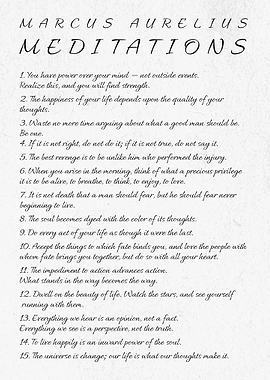 MARCUS AURELIUS
MEDITATIONS
1. You have power over your mind – not outside events.
Realize this, and you will find strength.
2. The happiness of your life depends upon the quality of your
thoughts.
3. Waste no more time arguing about what a good man should be.
Be one.
4. If it is not right, do not do it; if it is not true, do not say it.
5. The best revenge is to be unlike him who performed the injury.
6. When you arise in the morning, think of what a precious privilege
it is to be alive, to breathe, to think, to enjoy, to love.
7. It is not death that a man should fear, but he should fear never
beginning to live.
8. The soul becomes dyed with the color of its thoughts.
9. Do every act of your life as though it were the last.
10. Accept the things to which fate binds you, and love the people with
whom fate brings you together, but do so with all your heart.
11. The impediment to action advances action.
What stands in the way becomes the way.
12. Dwell on the beauty of life. Watch the stars, and see yourself
running with them.
13. Everything we hear is an opinion, not a fact.
Everything we see is a perspective, not the truth.
14. To live happily is an inward power of the soul.
15. The universe is change; our life is what our thoughts make it.